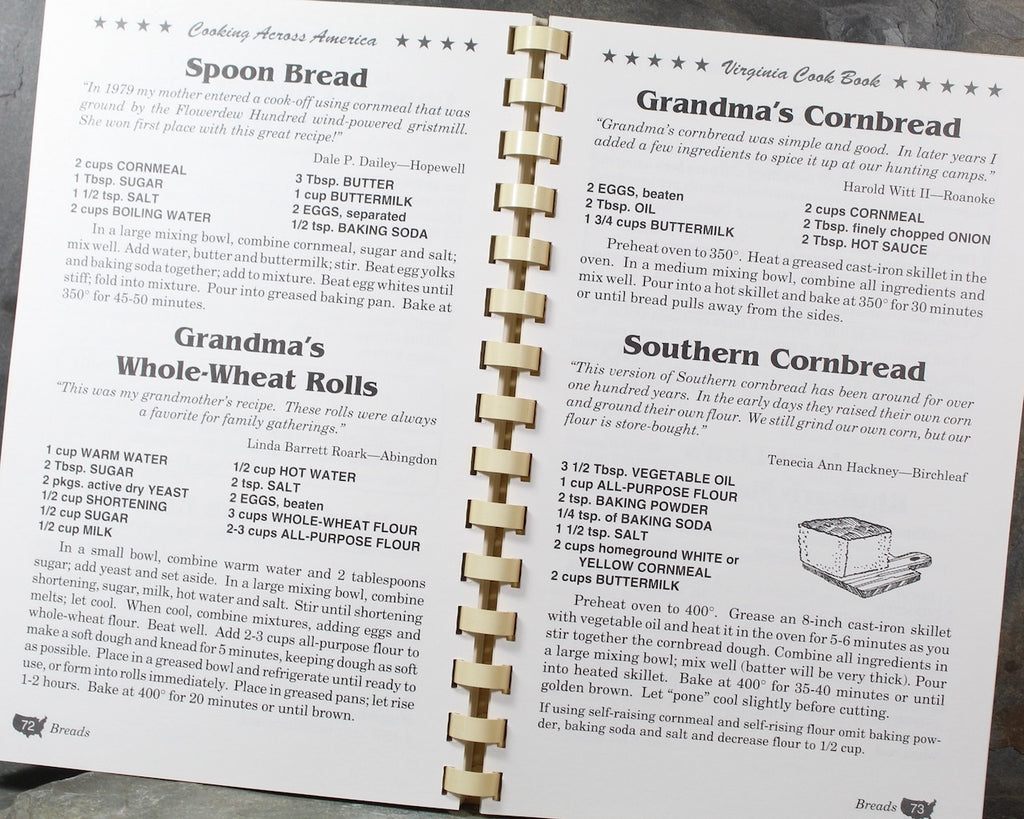 ★ ★ ★ ★ Cooking Across America ★ ★ ★ ★
Spoon Bread
"In 1979 my mother entered a cook-off using cornmeal that was
ground by the Flowerdew Hundred wind-powered gristmill.
She won first place with this great recipe!"
Dale P. Dailey—Hopewell
2 cups CORNMEAL
1 Tbsp. SUGAR
1 1/2 tsp. SALT
2 cups BOILING WATER
3 Tbsp. BUTTER
1 cup BUTTERMILK
2 EGGS, separated
1/2 tsp. BAKING SODA
In a large mixing bowl, combine cornmeal, sugar and salt;
mix well. Add water, butter and buttermilk; stir. Beat egg yolks
and baking soda together; add to mixture. Beat egg whites until
stiff; fold into mixture. Pour into greased baking pan. Bake at
350° for 45-50 minutes.
Grandma's
Whole-Wheat Rolls
"This was my grandmother's recipe. These rolls were always
a favorite for family gatherings."
Linda Barrett Roark—Abingdon
1 cup WARM WATER
2 Tbsp. SUGAR
2 pkgs. active dry YEAST
1/2 cup SHORTENING
1/2 cup SUGAR
1/2 cup MILK
1/2 cup HOT WATER
2 tsp. SALT
2 EGGS, beaten
3 cups WHOLE-WHEAT FLOUR
2-3 cups ALL-PURPOSE FLOUR
In a small bowl, combine warm water and 2 tablespoons
sugar; add yeast and set aside. In a large mixing bowl, combine
shortening, sugar, milk, hot water and salt. Stir until shortening
melts; let cool. When cool, combine mixtures, adding eggs and
whole-wheat flour. Beat well. Add 2-3 cups all-purpose flour to
make a soft dough and knead for 5 minutes, keeping dough as soft
as possible. Place in a greased bowl and refrigerate until ready to
use, or form into rolls immediately. Place in greased pans; let rise
1-2 hours. Bake at 400° for 20 minutes or until brown.
72 Breads
★ ★ ★ ★ ★ Virginia Cook Book ★ ★ ★ ★ ★
Grandma's Cornbread
"Grandma's cornbread was simple and good. In later years I
added a few ingredients to spice it up at our hunting camps."
Harold Witt II—Roanoke
2 EGGS, beaten
2 Tbsp. OIL
1 3/4 cups BUTTERMILK
2 cups CORNMEAL
2 Tbsp. finely chopped ONION
2 Tbsp. HOT SAUCE
Preheat oven to 350°. Heat a greased cast-iron skillet in the
oven. In a medium mixing bowl, combine all ingredients and
mix well. Pour into a hot skillet and bake at 350° for 30 minutes
or until bread pulls away from the sides.
Southern Cornbread
"This version of Southern cornbread has been around for over
one hundred years. In the early days they raised their own corn
and ground their own flour. We still grind our own corn, but our
flour is store-bought."
Tenecia Ann Hackney—Birchleaf
3 1/2 Tbsp. VEGETABLE OIL
1 cup ALL-PURPOSE FLOUR
2 tsp. BAKING POWDER
1/4 tsp. of BAKING SODA
1 1/2 tsp. SALT
2 cups homeground WHITE or
YELLOW CORNMEAL
2 cups BUTTERMILK
Preheat oven to 400°. Grease an 8-inch cast-iron skillet
with vegetable oil and heat it in the oven for 5-6 minutes as you
stir together the cornbread dough. Combine all ingredients in
a large mixing bowl; mix well (batter will be very thick). Pour
into heated skillet. Bake at 400° for 35-40 minutes or until
golden brown. Let "pone" cool slightly before cutting.
If using self-raising cornmeal and self-rising flour omit baking pow-
der, baking soda and salt and decrease flour to 1/2 cup.
Breads 73